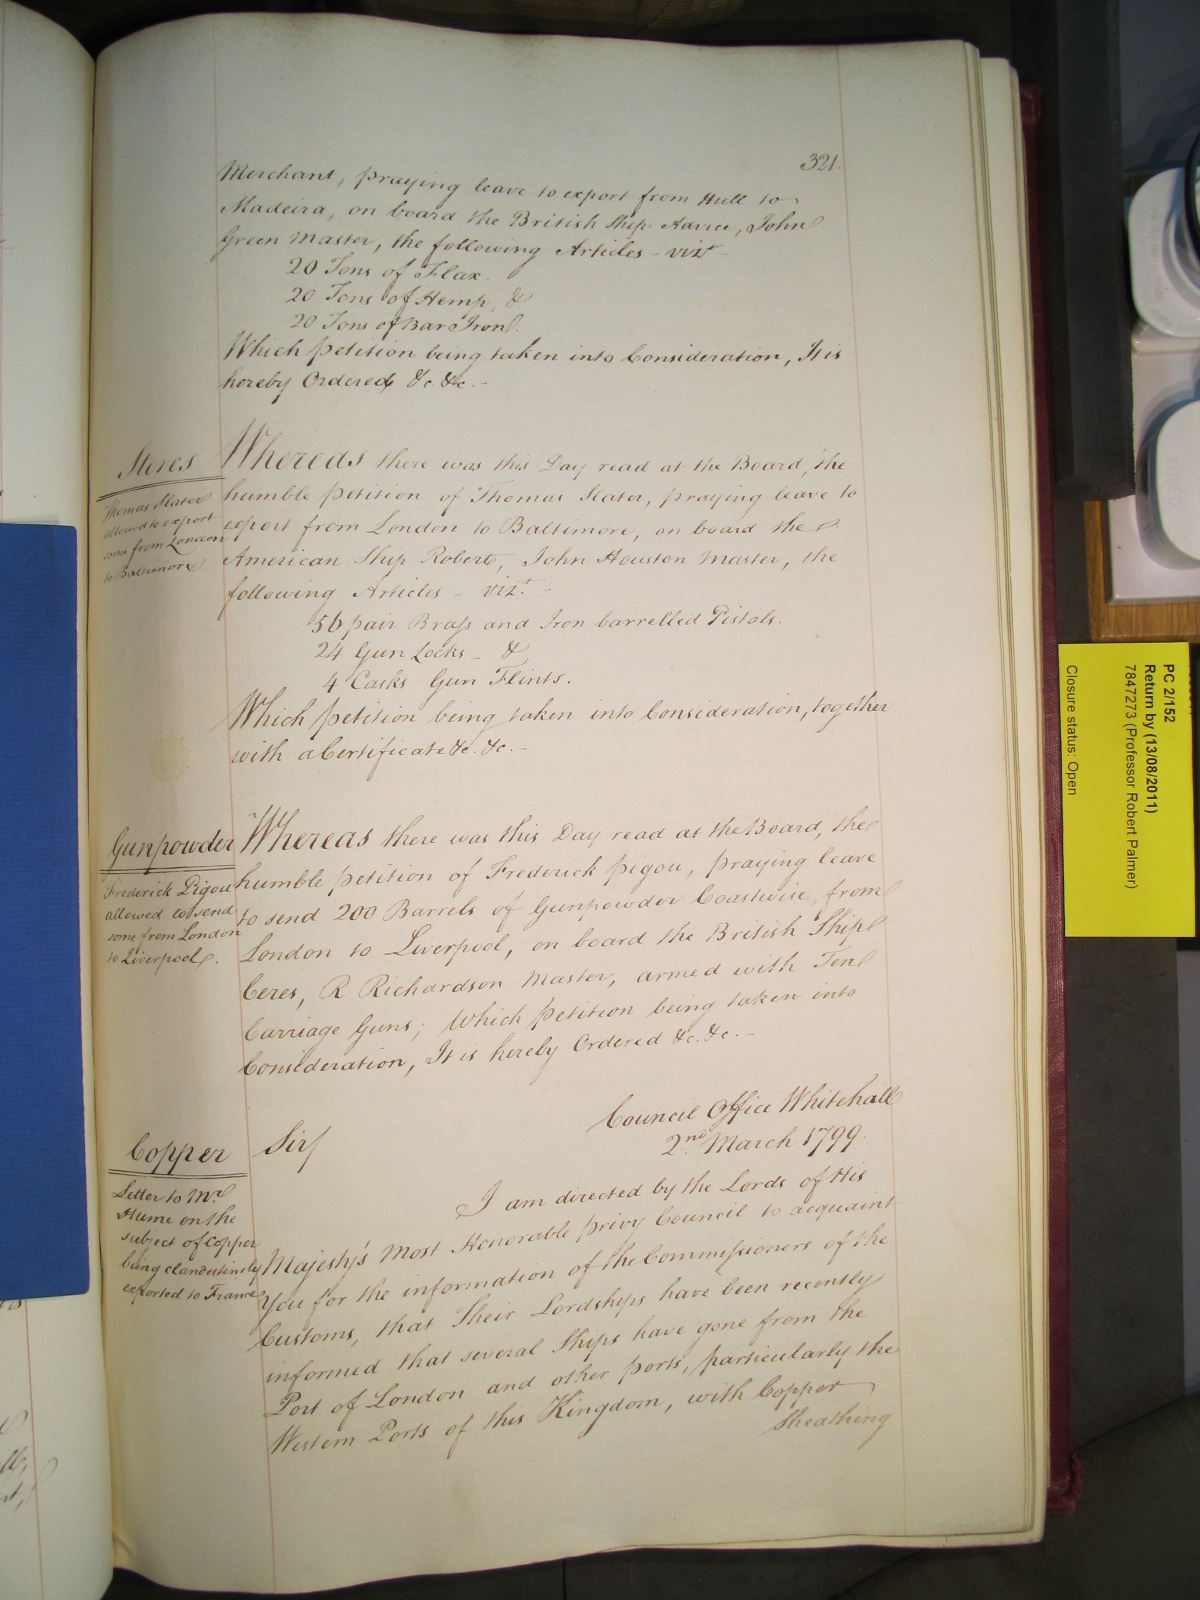 321.
Merchant, praying leave to export from Hull to
Madeira, on board the British Ship Advice, John
Green Master, the following Articles - vizt -
20 Tons of Flax
20 Tons of Hemp, &
20 Tons of Bar Iron.
Which petition being taken into Consideration, It is
hereby Ordered &c &c. -
Stores
Thomas Slater
allowed to export
some from London
to Baltimore
Whereas there was this Day read at the Board, the
humble petition of Thomas Slater, praying leave to
export from London to Baltimore, on board the
American Ship Roberts, John Houston Master, the
following Articles - vizt. -
56 pair Brass and Iron barrelled Pistols.
24 Gun Locks - &
4 Casks Gun Flints.
Which petition being taken into Consideration, together
with a Certificate &c. &c. -
Gunpowder
Frederick Pigou
allowed to send
some from London
to Liverpool.
Whereas there was this Day read at the Board, the
humble petition of Frederick pigou, praying leave
to send 200 Barrels of Gunpowder Coastwise, from
London to Liverpool, on board the British Ship
Ceres, R Richardson Master, armed with Ten
Carriage Guns; Which petition being taken into
Consideration, It is hereby Ordered &c. &c. -
Council Office Whitehall
2nd. March 1799.
Copper
Letter to Mr.
Hume on the
subject of Copper
being clandestinely
exported to France
Sir/
I am directed by the Lords of His
Majesty's Most Honorable privy Council to acquaint
You for the information of the Commissioners of the
Customs, that Their Lordships have been recently
informed that several Ships have gone from the
Port of London and other ports, particularly the
Western Ports of this Kingdom, with Copper
Sheathing
PC 2/152
Return by (13/08/2011)
7847273 (Professor Robert Palmer)
Closure status: Open